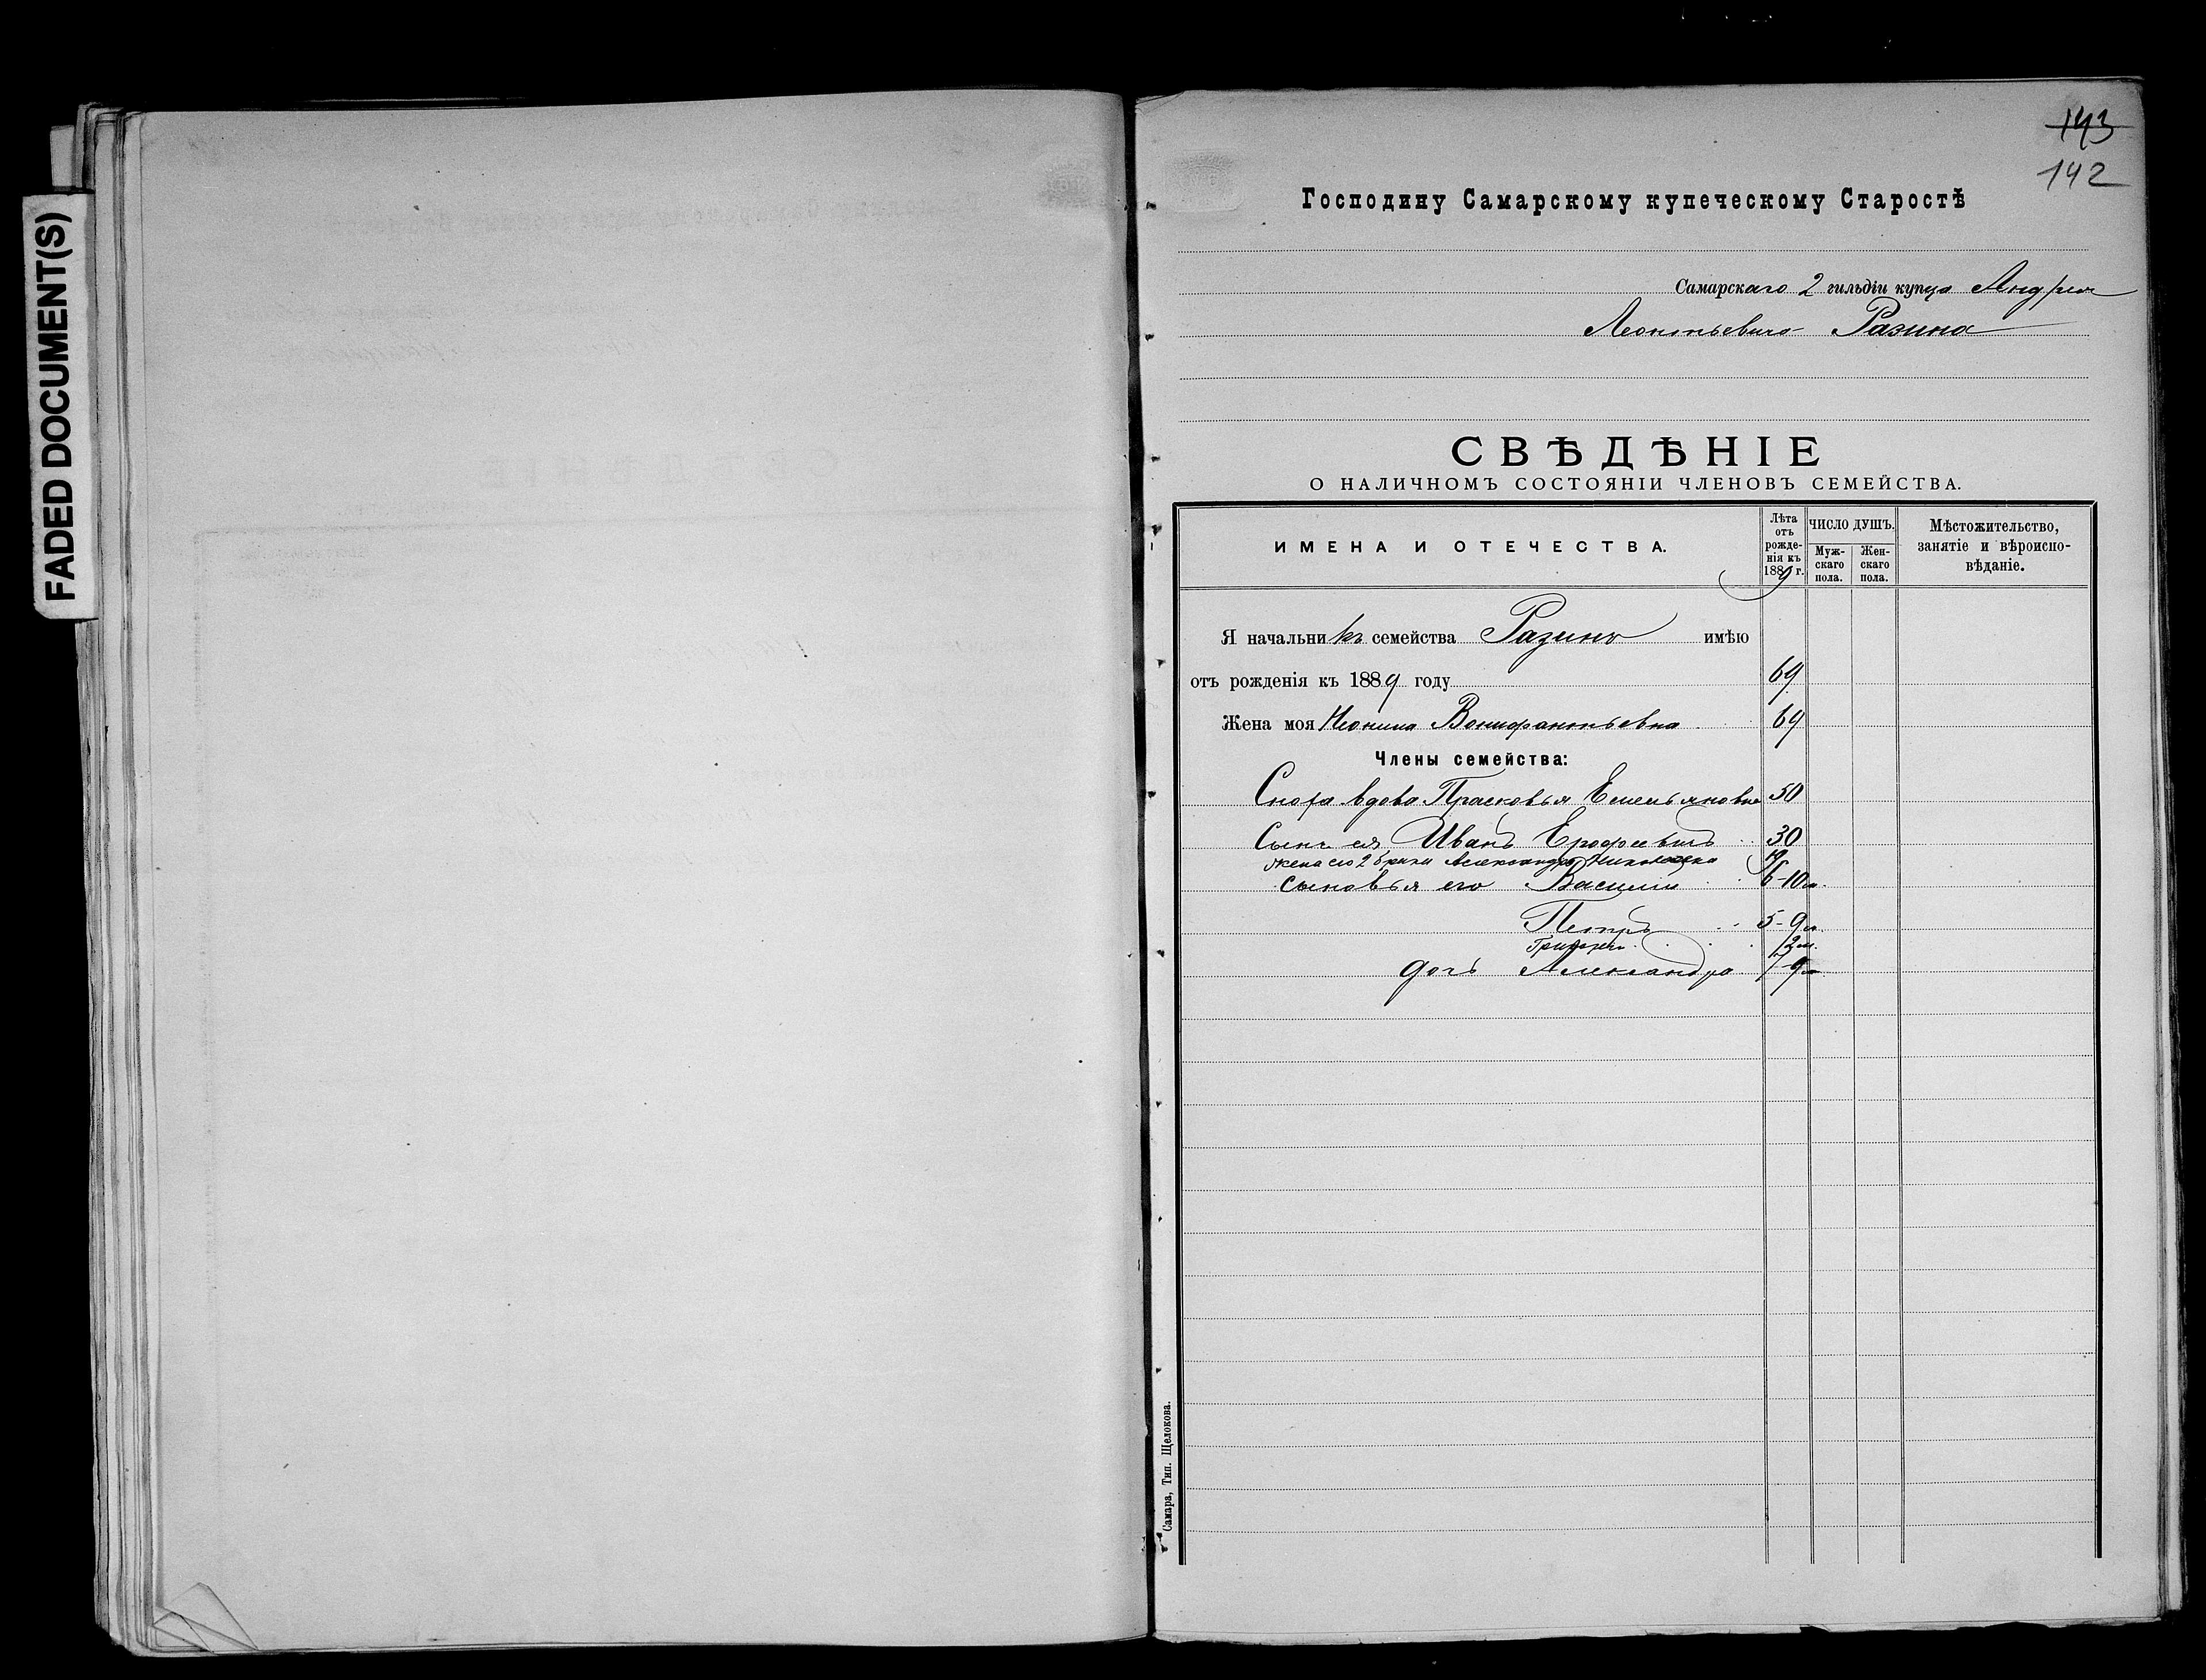 FADED DOCUMENT(S)
143
142
Господину Самарскому купеческому Старостѣ
Самарскаго 2 гильдіи купца Андрея
Леонтьевича Разина
СВѢДѢНІЕ
О НАЛИЧНОМЪ СОСТОЯНІИ ЧЛЕНОВЪ СЕМЕЙСТВА.
ИМЕНА И ОТЕЧЕСТВА.
Лѣта
отъ
рожде-
нія къ
1889 г.
ЧИСЛО ДУШЪ.
Муж-
скаго
пола.
Жен-
скаго
пола.
Мѣстожительство,
занятіе и вѣроиспо-
вѣданіе.
Я начальникъ семейства Разинъ имѣю
отъ рожденія къ 1889 году 69
Жена моя Неонила Вонифантьевна 69
Члены семейства:
Сноха вдова Прасковья Емельяновна 50
Сынъ ея Иванъ Ерофеевичъ 30
жена его 2 брака Александра Николаевна 19
сыновья его Василій 6-10 м.
Петръ 5-9 м.
Григорій 2 м.
дочь Александра 7-9 м
Самара, Тип. Щелокова.